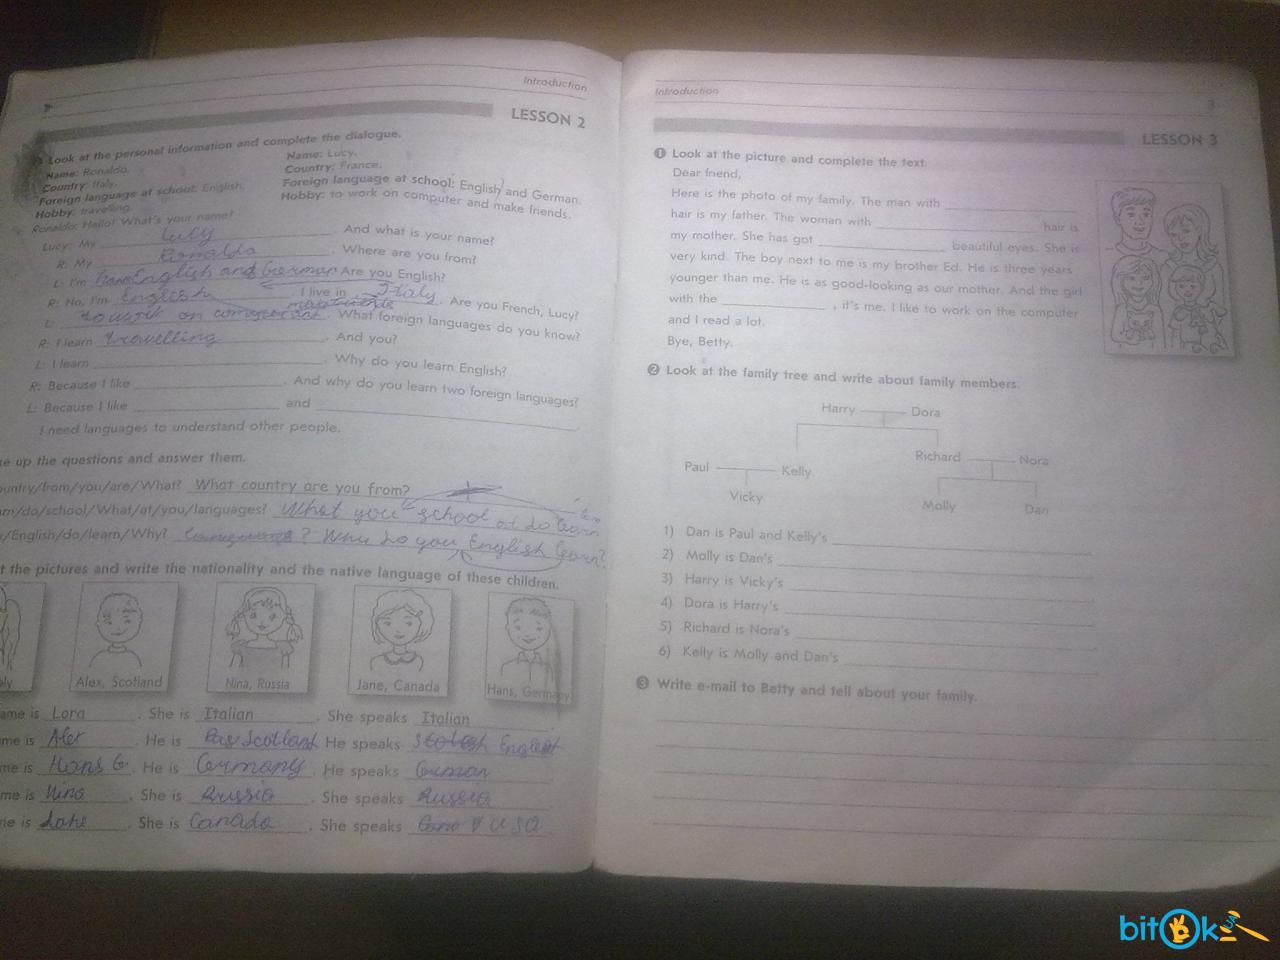 Introduction
LESSON 2
Look at the personal information and complete the dialogue.
Name: Ronaldo.
Country: Italy.
Foreign language at school: English.
Hobby: travelling.
Name: Lucy.
Country: France.
Foreign language at school: English and German.
Hobby: to work on computer and make friends.
Ronaldo: Hello! What's your name?
Lucy: My Lucy And what is your name?
R: My Ronaldo . Where are you from?
L: I'm English and German Are you English?
R: No, I'm English . I live in Italy . Are you French, Lucy?
L: to work on . What foreign languages do you know?
R: I learn travelling . And you?
L: I learn . Why do you learn English?
R: Because I like . And why do you learn two foreign languages?
L: Because I like and .
I need languages to understand other people.
up the questions and answer them.
/from/you/are/What? What country are you from?
/do/school/What/at/you/languages? What you school at do learn
/English/do/learn/Why? ? Why do you English learn?
the pictures and write the nationality and the native language of these children.
Alex, Scotland
Nina, Russia
Jane, Canada
Hans, Germany
is Lora . She is Italian . She speaks Italian
is Alex . He is Scotland He speaks
is Hans G . He is Germany . He speaks German
is Nina . She is Russia . She speaks Russia
is . She is Canada . She speaks USA
Introduction
3
LESSON 3
1 Look at the picture and complete the text.
Dear friend,
Here is the photo of my family. The man with
hair is my father. The woman with hair is
my mother. She has got beautiful eyes. She is
very kind. The boy next to me is my brother Ed. He is three years
younger than me. He is as good-looking as our mother. And the girl
with the , it's me. I like to work on the computer
and I read a lot.
Bye, Betty.
2 Look at the family tree and write about family members.
Harry Dora
Paul Kelly Richard Nora
Vicky Molly Dan
1) Dan is Paul and Kelly's
2) Molly is Dan's
3) Harry is Vicky's
4) Dora is Harry's
5) Richard is Nora's
6) Kelly is Molly and Dan's
3 Write e-mail to Betty and tell about your family.
bitOk.ua